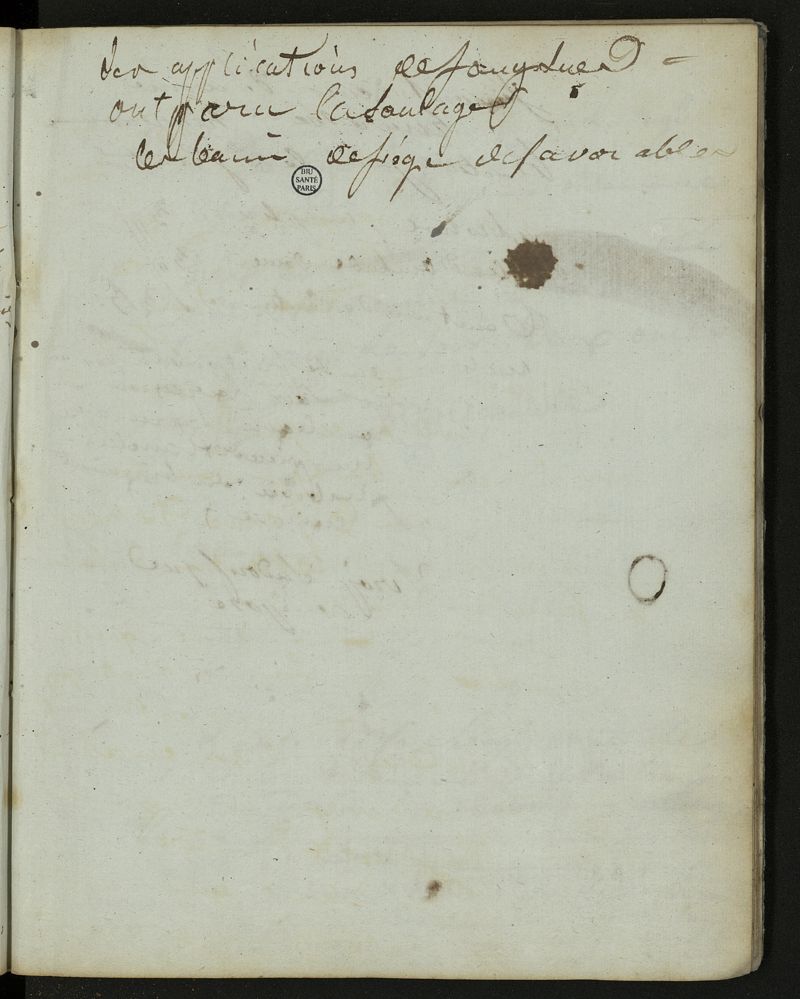 des applications de sangsues
ont paru la soulager
les bains de siège defavorables
BIU
SANTÉ
PARIS